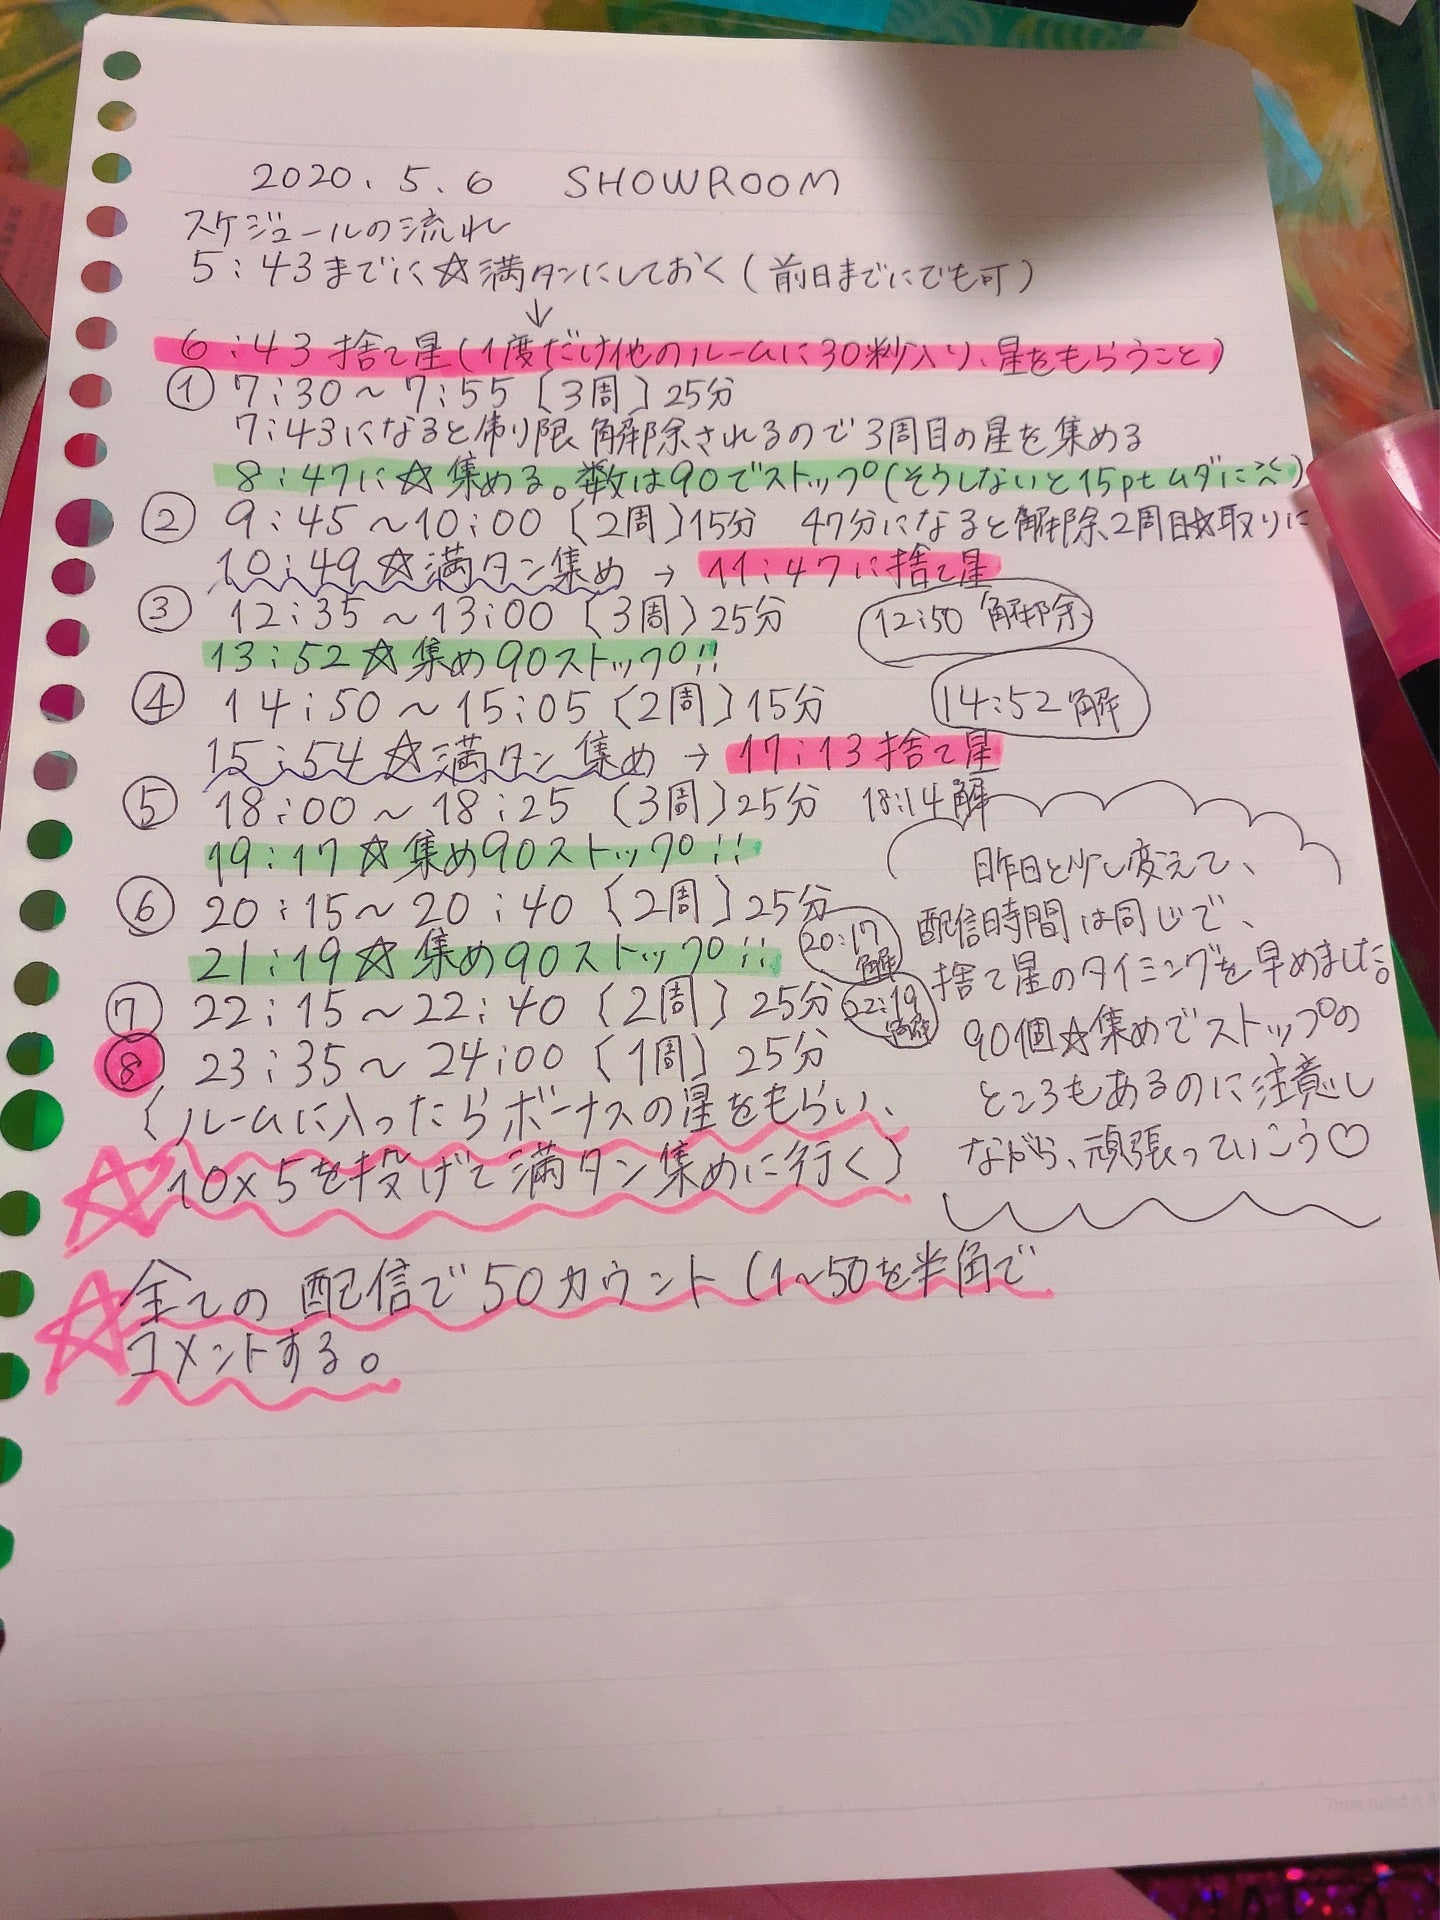 2020.5.6 SHOWROOM
スケジュールの流れ
5:43までに☆満タンにしておく(前日までにでも可)
↓
6:43 捨て星(1度だけ他のルームに30秒入り、星をもらうこと)
① 7:30～7:55〔3周〕25分
7:43になると制限解除されるので3周目の星を集める
8:47に☆集める。数は90でストップ(そうしないと15ptムダに)
② 9:45～10:00〔2周〕15分 47分になると解除2周目☆取りに
10:49☆満タン集め→11:47に捨て星
③ 12:35～13:00〔3周〕25分 12:50 解除
13:52☆集め90ストップ!!
④ 14:50～15:05〔2周〕15分 14:52解
15:54☆満タン集め→17:13捨て星
⑤ 18:00～18:25〔3周〕25分 18:14解
19:17☆集め90ストップ!!
⑥ 20:15～20:40〔2周〕25分 20:17解
21:19☆集め90ストップ!!
⑦ 22:15～22:40〔2周〕25分 22:19解
⑧ 23:35～24:00〔1周〕25分
〔ルームに入ったらボーナスの星をもらい、
☆10×5を投げて満タン集めに行く〕
☆全ての配信で50カウント(1～50を半角で
コメントする。
昨日と少し変えて、
配信時間は同じで、
捨て星のタイミングを早めました。
90個☆集めでストップの
ところもあるのに注意し
ながら、頑張っていこう♡